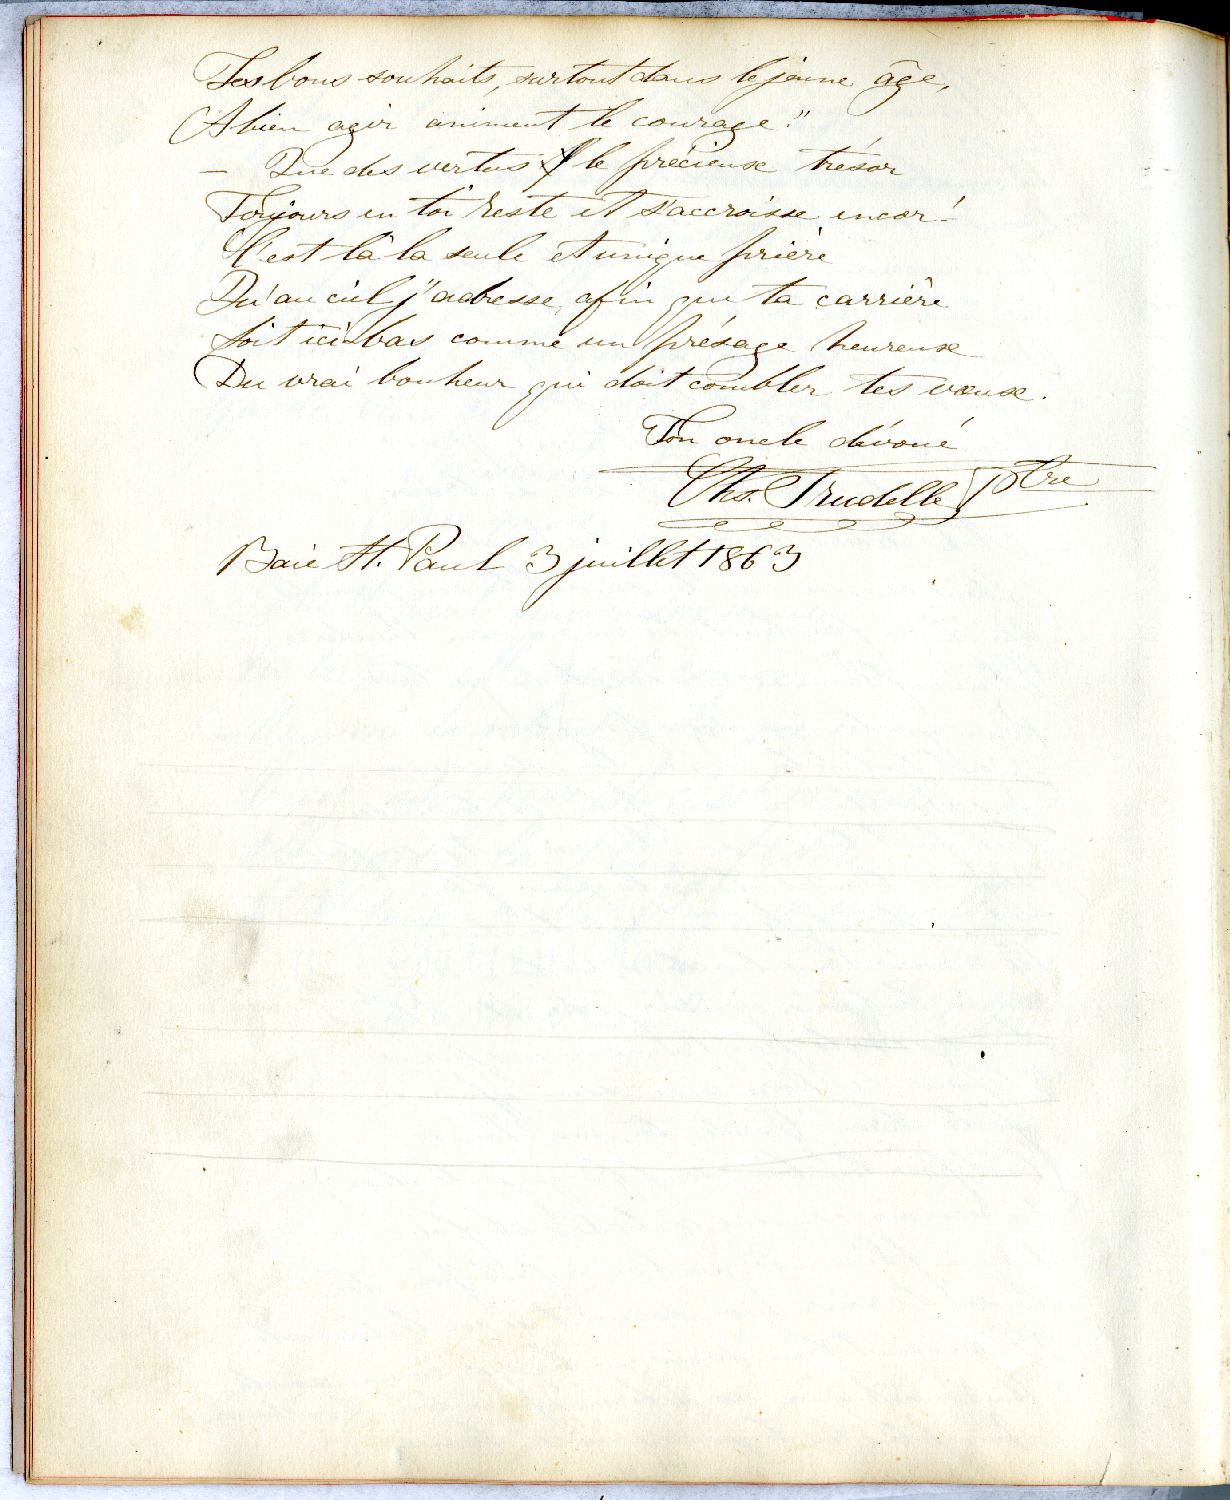 Les bons souhaits, surtout dans le jeune âge,
A bien agir animent le courage."
— Que des vertus le précieux trésor
Toujours en toi reste et s'accroisse encor!
C'est là la seule et unique prière
Qu'au ciel j'adresse, afin que ta carrière
Soit ici-bas comme un présage heureux
Du vrai bonheur qui doit combler tes vœux.
Ton oncle dévoué
Chs. Trudelle Ptre
Baie St. Paul 3 juillet 1863